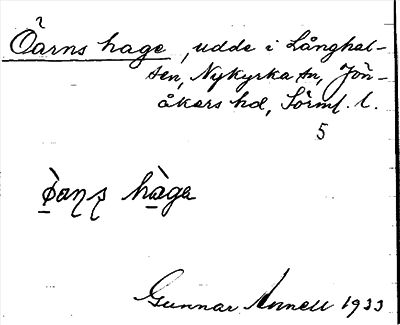 Öarns hage, udde i Långhal-
sen, Nykyrka sn, Jön-
åkers hd, Sörml. l.
5
hàga
Gunnar Annell 1933